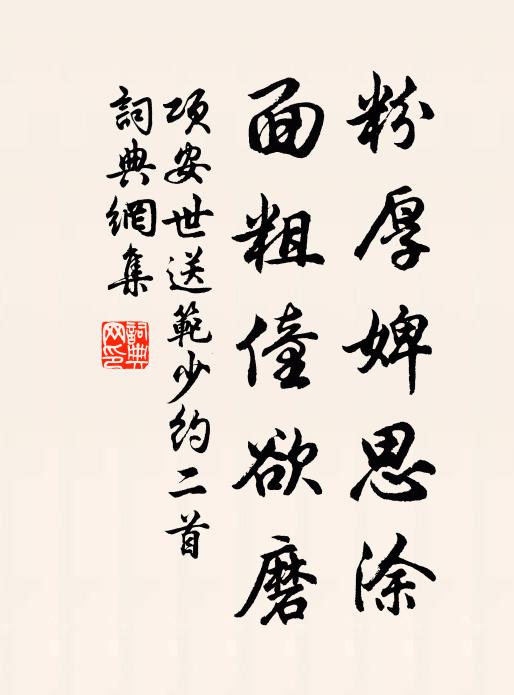 粉厚婢思涂
面粗僮欲磨
项安世送範少約二首
詞典網集
詞典網印